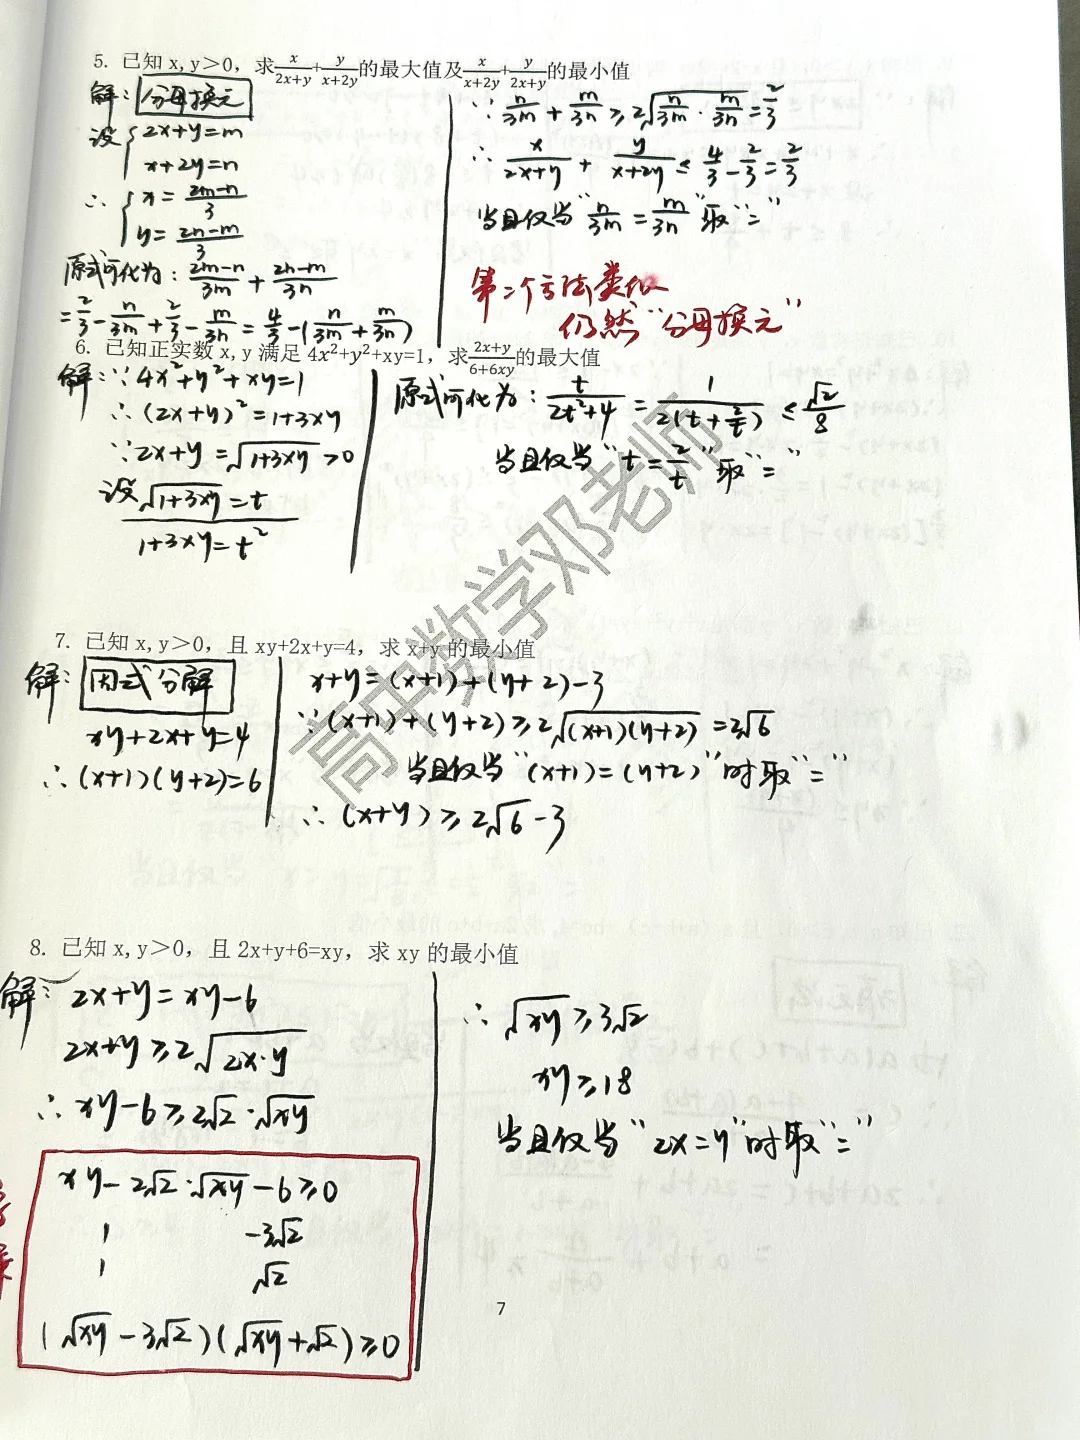 5. 已知x,y＞0，求x/(2x+y)+y/(x+2y)的最大值及x/(x+2y)+y/(2x+y)的最小值
解：分母换元
设{2x+y=m
x+2y=n
∴{x=(2m-n)/3
y=(2n-m)/3
原式可化为：(2m-n)/3m+(2n-m)/3n
=2/3-n/3m+2/3-m/3n=4/3-(n/3m+m/3n)
∵n/3m+m/3n≥2√(n/3m·m/3n)=2/3
∴x/(2x+y)+y/(x+2y)≤4/3-2/3=2/3
当且仅当"n/3m=m/3n"取"="
第二个方法类似
仍然"分母换元"
6. 已知正实数x,y满足4x²+y²+xy=1，求(2x+y)/(6+6xy)的最大值
解：∵4x²+y²+xy=1
∴(2x+y)²=1+3xy
∵2x+y=√(1+3xy)>0
设√(1+3xy)=t
1+3xy=t²
原式可化为：t/(2t²+4)=1/(2(t+2/t))≤√2/8
当且仅当"t=2/t"取"="
7. 已知x,y＞0，且xy+2x+y=4，求x+y的最小值
解：因式分解
xy+2x+y=4
∴(x+1)(y+2)=6
x+y=(x+1)+(y+2)-3
∵(x+1)+(y+2)≥2√((x+1)(y+2))=2√6
当且仅当"(x+1)=(y+2)"时取"="
∴(x+y)≥2√6-3
8. 已知x,y＞0，且2x+y+6=xy，求xy的最小值
解：2x+y=xy-6
2x+y≥2√(2x·y)
∴xy-6≥2√2·√xy
xy-2√2·√xy-6≥0
1 -3√2
1 √2
(√xy-3√2)(√xy+√2)≥0
∴√xy≥3√2
xy≥18
当且仅当"2x=y"时取"="
7
高中数学邓老师